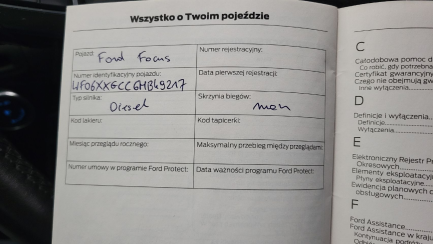 Wszystko o Twoim pojeździe
Pojazd: Ford Focus
Numer rejestracyjny:
Numer identyfikacyjny pojazdu:
WF06XXGCC6HB49217
Data pierwszej rejestracji:
Typ silnika:
Diesel
Skrzynia biegów:
man
Kod lakieru:
Kod tapicerki:
Miesiąc przeglądu rocznego:
Maksymalny przebieg między przeglądami:
Numer umowy w programie Ford Protect:
Data ważności programu Ford Protect:
C
Całodobowa pomoc d
Co robić, gdy potrzebna
Certyfikat gwarancyjny
Czego nie obejmują gw
Inne wyłączenia
D
Definicje i wyłączenia
Definicje
Wyłączenia
E
Elektroniczny Rejestr Pr
Okresowych
Elementy eksploatacyj
Płyny eksploatacyjne
Ewidencja planowych o
obsługowych
F
Ford Assistance
Ford Assistance w kraju
Kontynuacja podróż